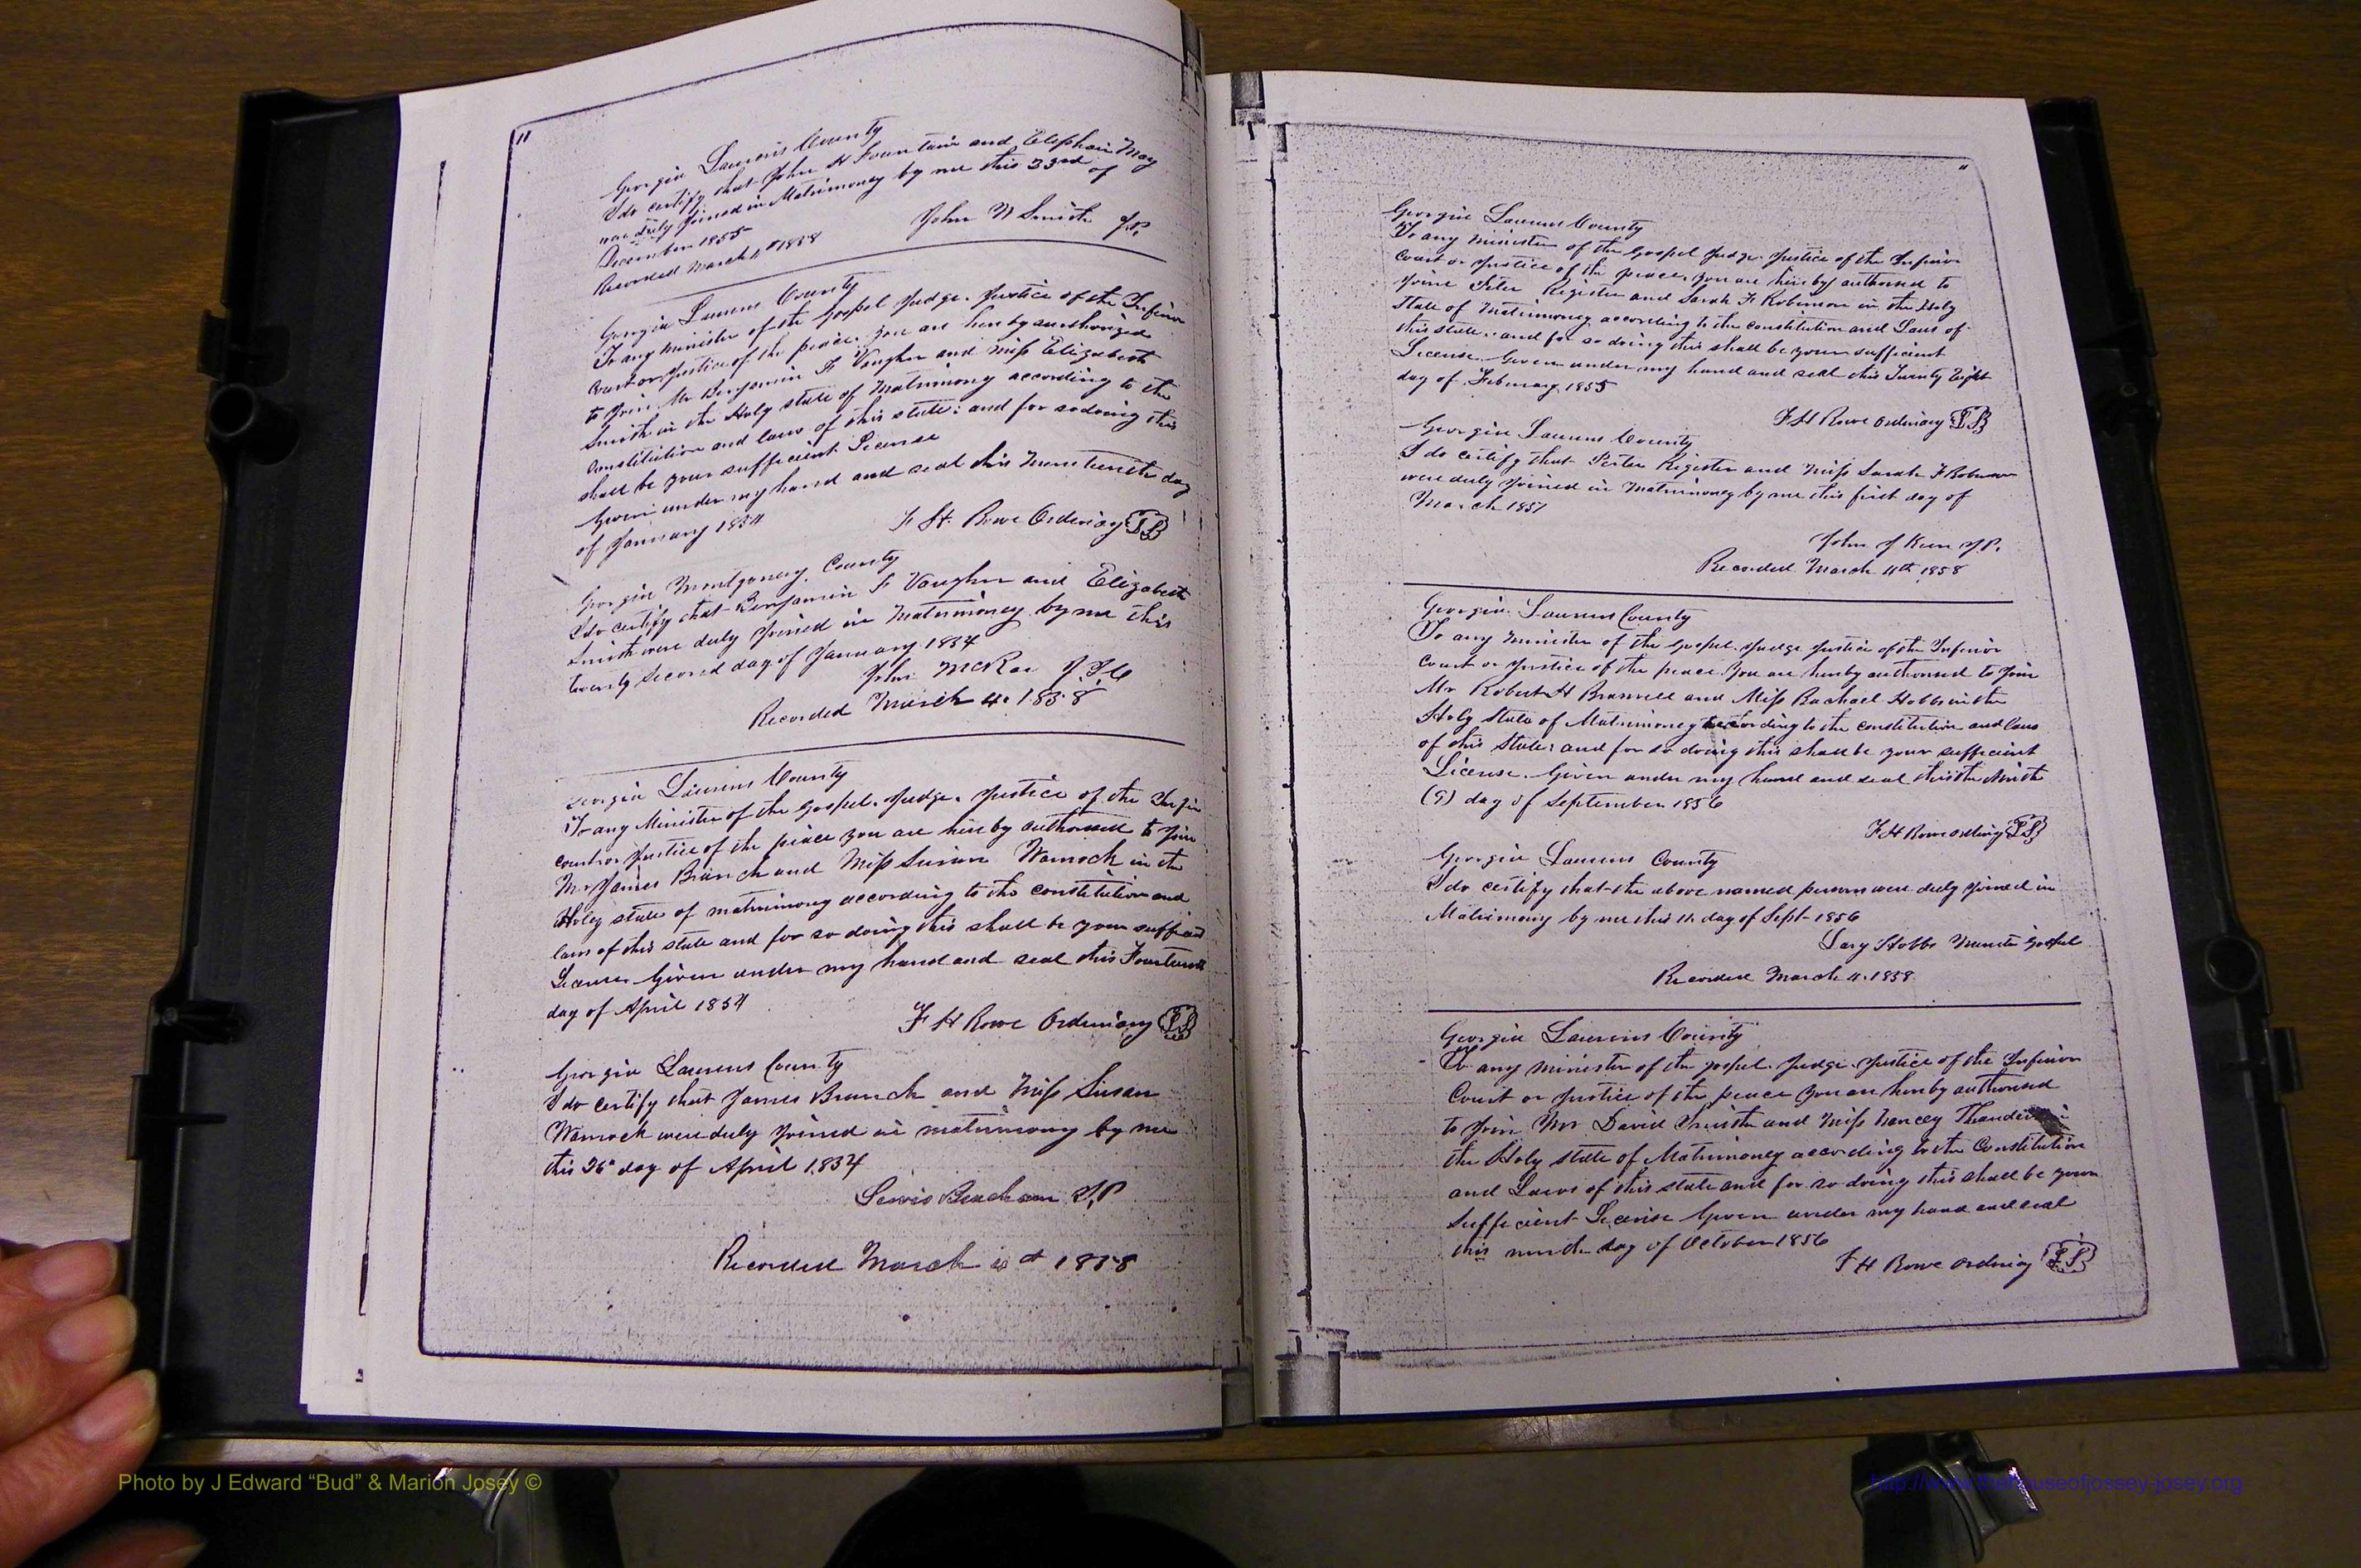 11
Georgia Laurens County
I do certify that John H Fountain and Elephair May
was duly Joined in Matrimoney by me this 23rd of
December 1855
John W Smith J.P.
Recorded March 4th 1858
Georgia Laurens County
To any minister of the Gospel Judge. Justice of the Inferior
Court or Justice of the peace. you are hereby authorized
to Join Mr Benjamin F Vaughn and Miss Elizabeth
Smith in the Holy state of Matrimony according to the
Constitution and laws of this state: and for so doing this
shall be your sufficient License
Given under my hand and seal this day
of January 1854
F. H. Rowe Ordinary LS
Georgia Montgomery County
I do certify that Benjamin F Vaughn and Elizabeth
Smith were duly Joined in Matrimoney by me this
twenty second day of January 1854
John McRae J.I.C
Recorded March 4. 1858
Georgia Laurens County
To any Minister of the Gospel. Judge. Justice of the Inferior
court or Justice of the peace you are hereby authorised to Join
Mr James Branch and Miss Susan Warnock in the
Holy state of matrimony according to the constitution and
laws of this state and for so doing this shall be your sufficient
License Given under my hand and seal this Fourteenth
day of April 1854
F H Rowe Ordinary LS
Georgia Laurens County
I do certify that James Branch and Miss Susan
Warnock were duly Joined in matrimony by me
this 26 day of April 1854
Lewis Beacham J.P
Recorded March 4th 1858
11
Georgia Laurens County
To any minister of the Gospel Judge. Justice of the Inferior
Court or Justice of the peace. you are hereby authorised to
Joine Peter Register and Sarah F Robinson in the Holy
State of Matrimoney according to the constitution and Laws of
this state: and for so doing this shall be your sufficient
License. Given under my hand and seal this Twenty Eight
day of February 1855
F H Rowe Ordinary LS
Georgia Laurens County
I do certify that Peter Register and Miss Sarah F Robinson
were duly Joined in Matrimoney by me this first day of
March 1857
John J Keen J.P.
Recorded March 4th 1858
Georgia Laurens County
To any minister of the Gospel. Judge Justice of the Inferior
Court or Justice of the peace you are hereby authorised to Join
Mr Robert H Braswell and Miss Rachael Hobbs in the
Holy State of Matrimoney according to the constitution and laws
of this State: and for so doing this shall be your sufficient
License. Given under my hand and seal this the Ninth
(9) day of September 1856
F H Rowe Ordinary LS
Georgia Laurens County
I do certify that the above named persons were duly Joined in
Matrimony by me this 11. day of Sept 1856
Lary Hobbs Minister Gospel
Recorded March 4. 1858
Georgia Laurens County
To any minister of the gospel. Judge. Justice of the Inferior
Court or Justice of the peace you are hereby authorised
to Join Mr David and Miss Nancy
the Holy state of Matrimoney according to the Constitution
and Laws of this state and for so doing this shall be your
Sufficient License Given under my hand and seal
this day of October 1856
F H Rowe Ordinary LS
Photo by J Edward “Bud” & Marion Josey ©
http://www.thehouseofjossey-josey.org